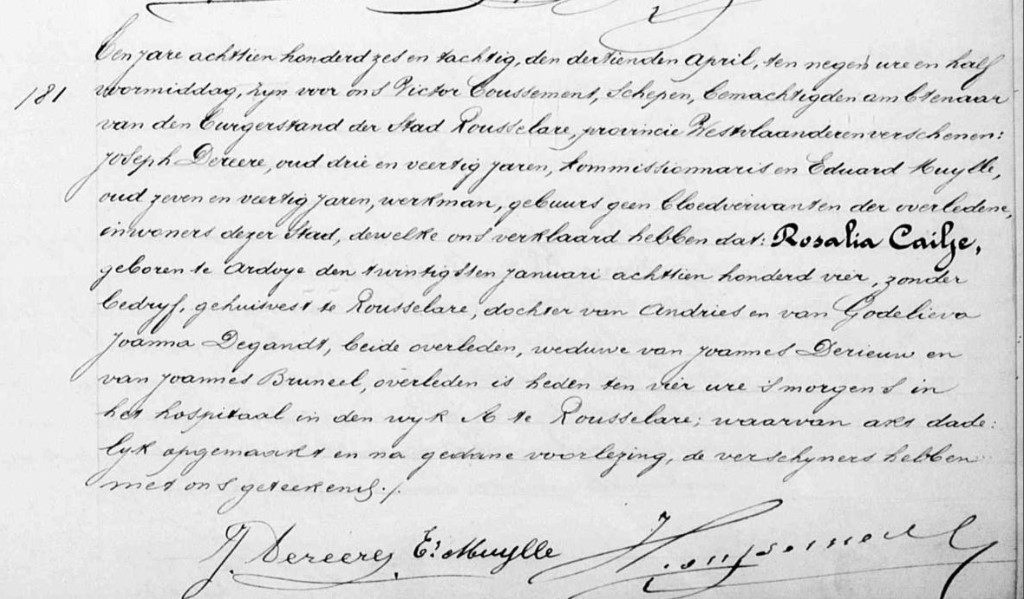 Een jare achttien honderd zes en tachtig, den dertienden April, ten negen ure en half
181
voormiddag, zyn voor ons Victor Coussement, Schepen, bemachtigden ambtenaar
van den burgerstand der Stad Rousselare, provincie Westvlaanderen verschenen:
Joseph Dereere, oud drie en veertig jaren, kommissionnaris en Eduard Muylle,
oud zeven en veertig jaren, werkman, gebuurs geen bloedverwanten der overledene,
inwoners dezer Stad, dewelke ons verklaard hebben dat: Rosalia Cailje,
geboren te Ardoye den twintigsten januari achttien honderd vier, zonder
bedryf, gehuisvest te Rousselare, dochter van Andries en van Godelieva
Joanna Degandt, beide overleden, weduwe van Joannes Derieuw en
van Joannes Bruneel, overleden is heden ten vier ure 's morgens in
het hospitaal in den wyk A te Rousselare; waarvan akt dade:
lyk opgemaakt en na gedane voorlezing, de verschyners hebben
met ons geteekend./.
J. Dereere E. Muylle